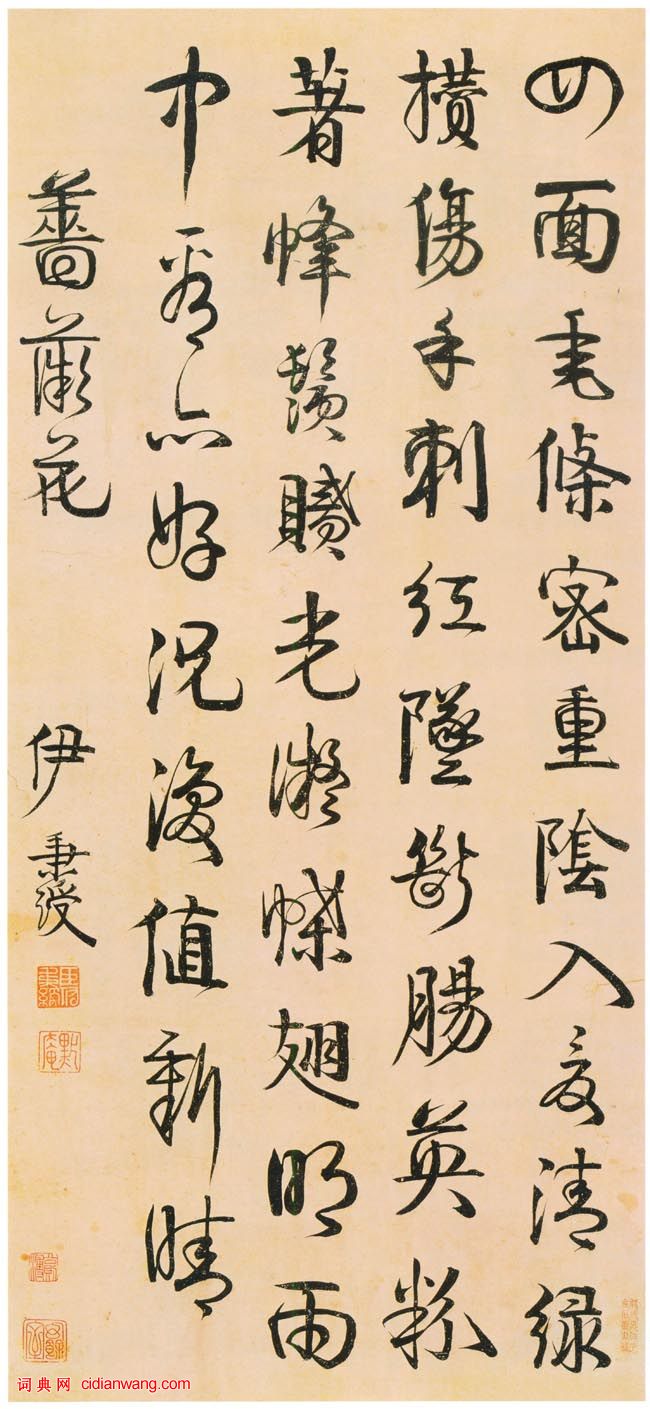 四面垂條密重陰入夏清綠
攢傷手刺紅墜斷腸英粉
著蜂鬚膩光凝蝶翅明雨
中看亦好況復值新晴
薔薇花
伊秉綬
词典网 cidianwang.com